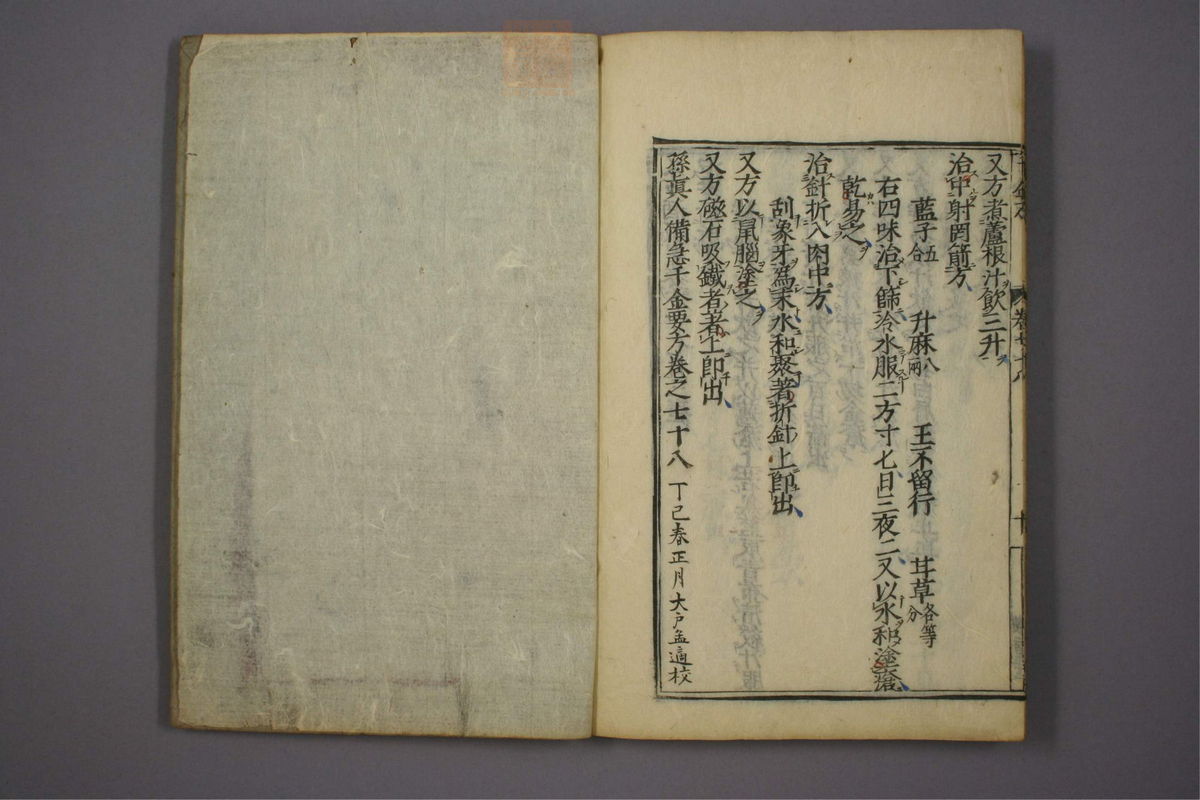 又方煮蘆根汁飲三升
治中射罔箭方
藍子五合 升麻八兩 王不留行 甘草各等分
右四味治下篩冷水服二方寸匕日三夜二又以水和塗瘡
乾易之
治針折入肉中方
刮象牙為末水和聚著折針上即出
又方以鼠腦塗之
又方磁石吸鐵者著上即出
孫真人備急千金要方卷之七十八 丁巳春正月大戸孟適校